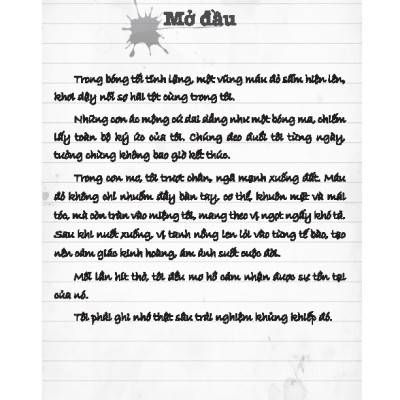 Mở đầu
Trong bóng tối tĩnh lặng, một vũng máu đỏ sẫm hiện lên,
khơi dậy nỗi sợ hãi tột cùng trong tôi.
Những cơn ác mộng cứ dai dẳng như một bóng ma, chiếm
lấy toàn bộ ký ức của tôi. Chúng đeo đuổi tôi từng ngày,
tưởng chừng không bao giờ kết thúc.
Trong cơn mơ, tôi trượt chân, ngã mạnh xuống đất. Máu
đỏ không chỉ nhuốm đầy bàn tay, cơ thể, khuôn mặt và mái
tóc, mà còn tràn vào miệng tôi, mang theo vị ngọt ngấy khó tả.
Sau khi nuốt xuống, vị tanh nồng len lỏi vào từng tế bào, tạo
nên cảm giác kinh hoàng, ám ảnh suốt cuộc đời.
Mỗi lần hít thở, tôi đều mơ hồ cảm nhận được sự tồn tại
của nó.
Tôi phải ghi nhớ thật sâu trải nghiệm khủng khiếp đó.